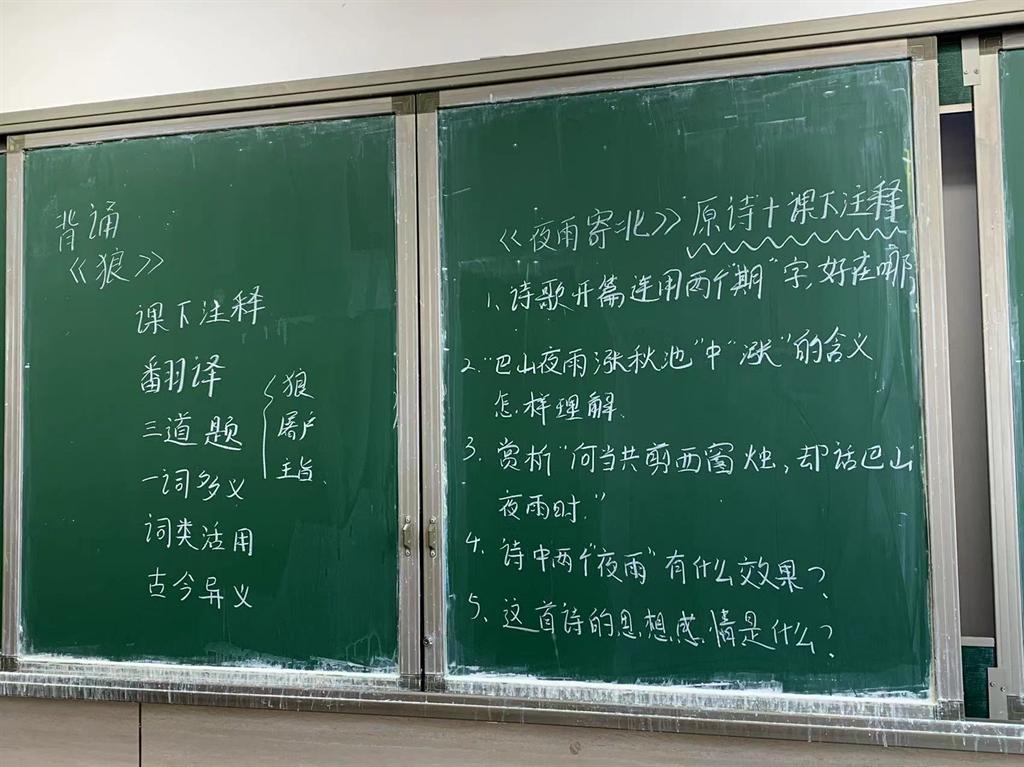 背诵
《狼》
课下注释
翻译
三道题
狼
屠户
主旨.
一词多义
词类活用
古今异义
《夜雨寄北》原诗+课下注释
1、诗歌开篇连用两个"期"字,好在哪
2."巴山夜雨涨秋池"中"涨"的含义
怎样理解.
3、赏析"何当共剪西窗烛,却话巴山
夜雨时."
4、诗中两个"夜雨"有什么效果?
5、这首诗的思想感情是什么?